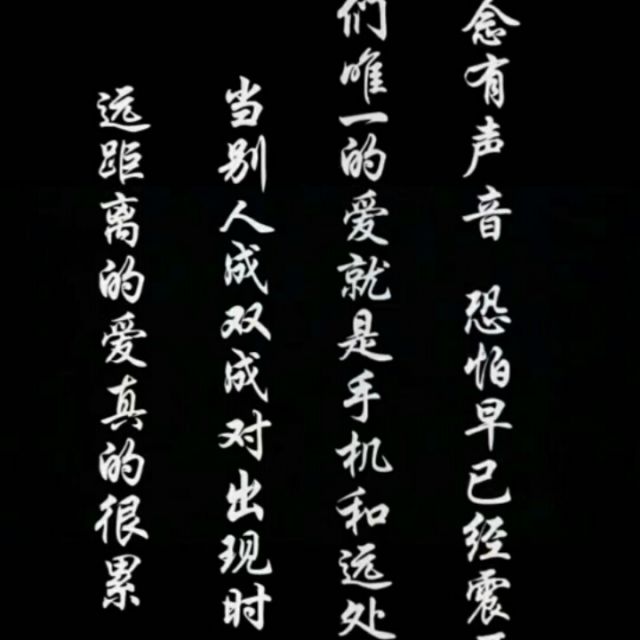 远距离的爱真的很累
当别人成双成对出现时
们唯一的爱就是手机和远处
念有声音 恐怕早已经震